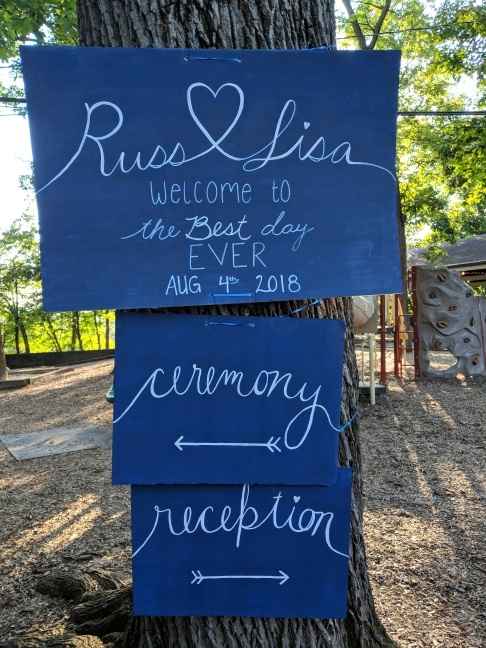 Russ Lisa
Welcome to
the Best day
EVER
AUG 4th 2018
ceremony
reception